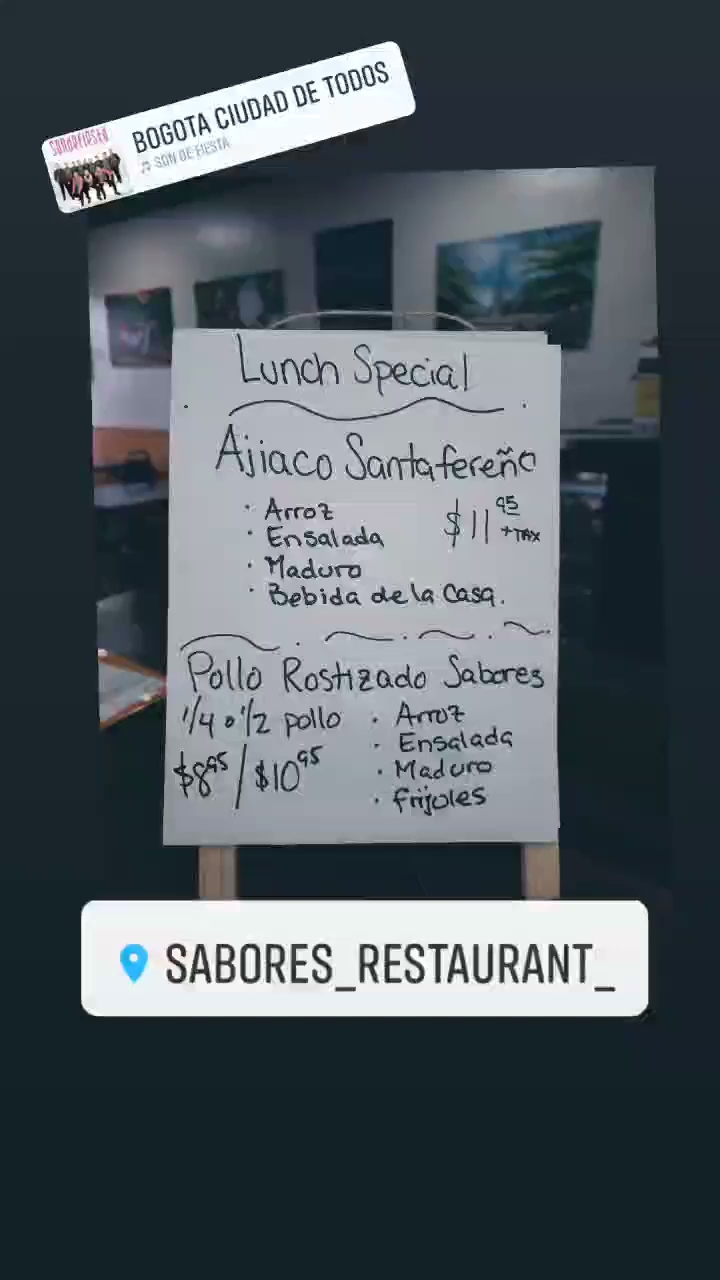 SONDEFIESTA
BOGOTA CIUDAD DE TODOS
SON DE FIESTA
Lunch Special
Ajiaco Santafereño
· Arroz
· Ensalada
· Maduro
· Bebida de la Casa.
$11 95 + TAX
Pollo Rostizado Sabores
1/4 o 1/2 pollo
$8 95 / $10 95
· Arroz
· Ensalada
· Maduro
· frijoles
SABORES_RESTAURANT_